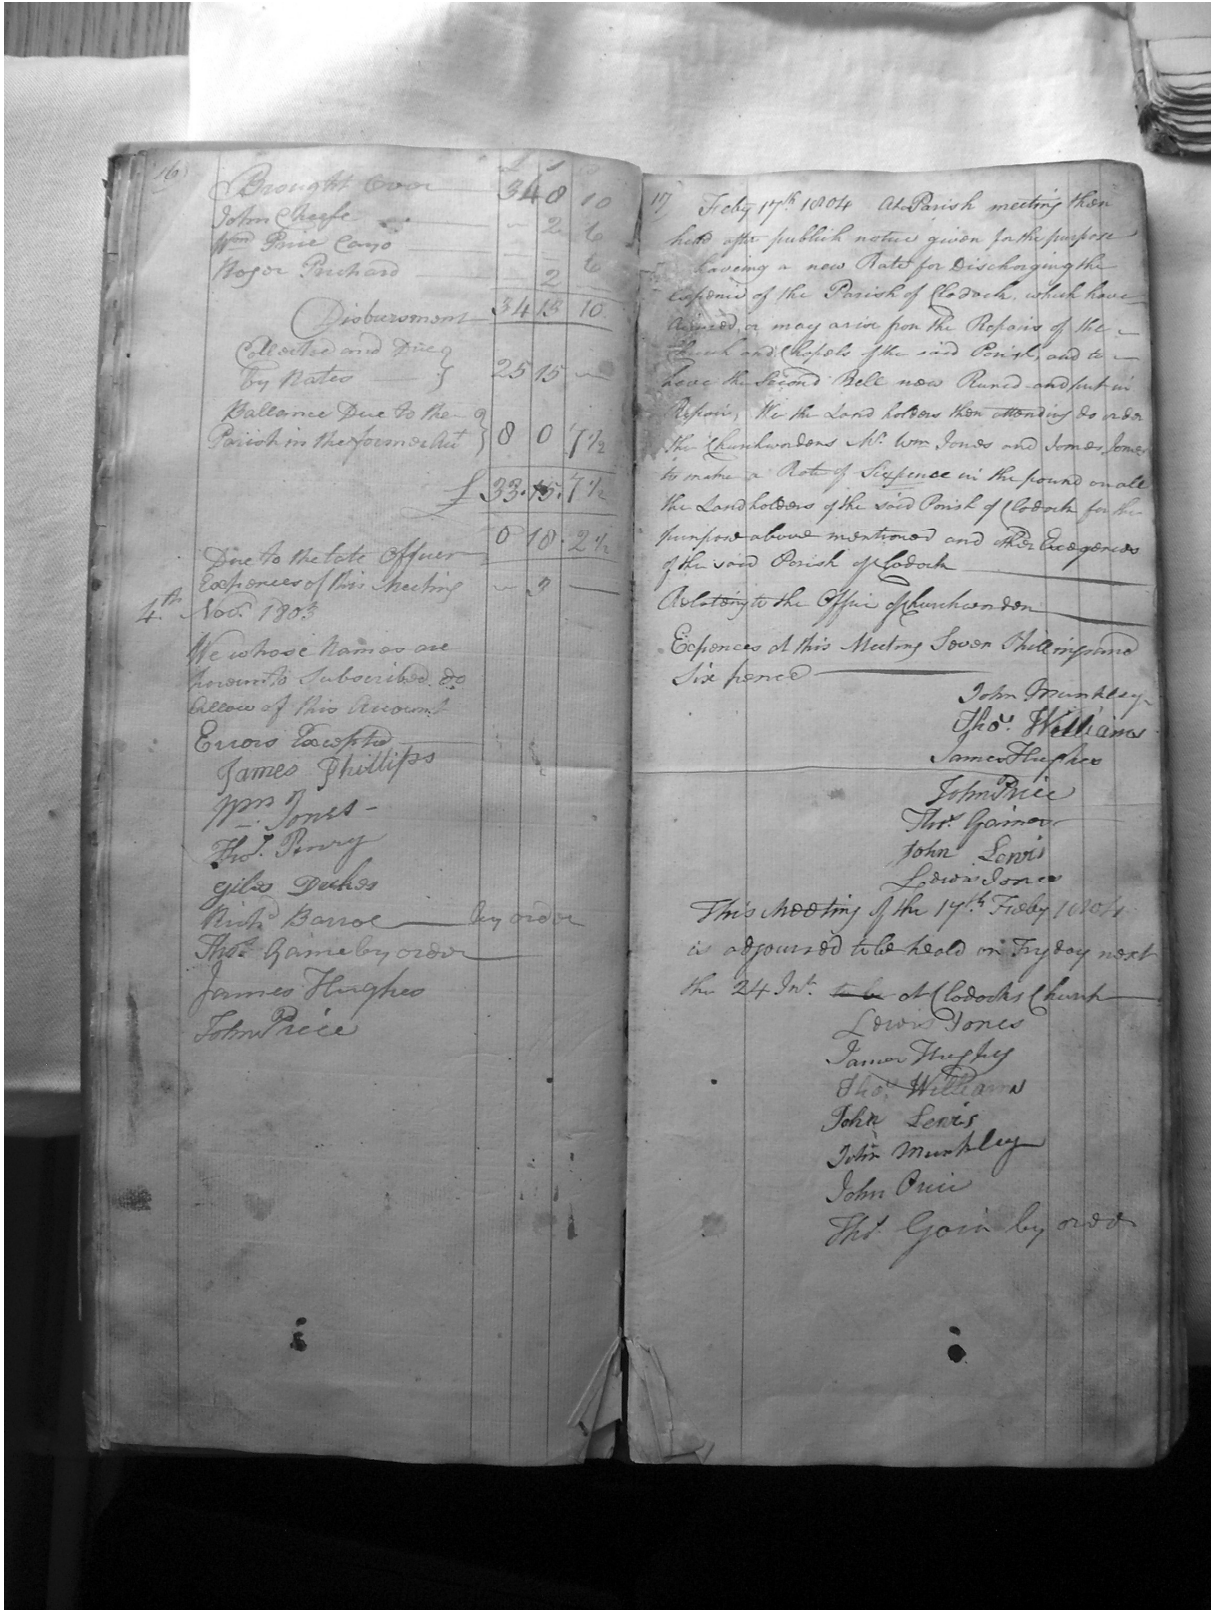 16
Brought Over 34 8 10
John Cheese — 2 6
Wm Price Cayo — — 6
Roger Prichard — 2
Disbursment 34 13 10
Collected and Due
by Rates — 25 15 —
Ballance Due to the
Parish in the former Act 8 0 7½
£ 33 15 7½
0 18 2½
Due to the late Officer
Expences of this Meeting — 3 —
4th Novr 1803
We whose Names are
hereunto Subscribed do
Allow of this Account
Errors Excepted
James Phillips
Wm Jones
Thos Penry
Giles Dukes
Richd Barroe — by order
Thos Gaine by order
James Hughes
John Price
17 Feby 17th 1804 At a Parish meeting then
held after publick notice given for the purpose
haveing a new Rate for Discharging the
expence of the Parish of Clodock, which have
or may arise from the Repairs of the
Church and Chapels of the said Parish, and to
have the Second Bell new Runed and put in
Repair, We the Land holders then attending do order
the Churchwardens Mr Wm Jones and James Jones
to make a Rate of Sixpence in the pound on all
the Landholders of the said Parish of Clodock for the
purpose above mentioned and other Exegences
of the said Parish of Clodock
Relating to the Office of Churchwarden
Expences at this Meeting Seven Shillings and
Six pence
John Munkley
Thos Williams
James Hughes
John Price
Thos Gaines
John Lewis
Lewis Jones
This Meeting of the 17th Feby 1804
is adjourned to be heald on Fryday next
the 24 Int. to be at Clodocks Church
Lewis Jones
James Hughes
Thos Williams
John Lewis
John Munkley
John Price
Thos Gain by order